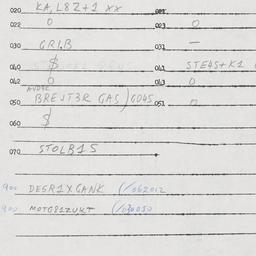 020 KA, L8Z+1 XX 021
022 0 023 0
030 GRIB 031 —
040 $ 041 STE4S+K1
042 0 043 0
050 BREJT3R GAS) GD4S 051
060 $
070 STOLB1S
900 DESR1XGANK (/062012
900 MOTG81ZUKT (/030050